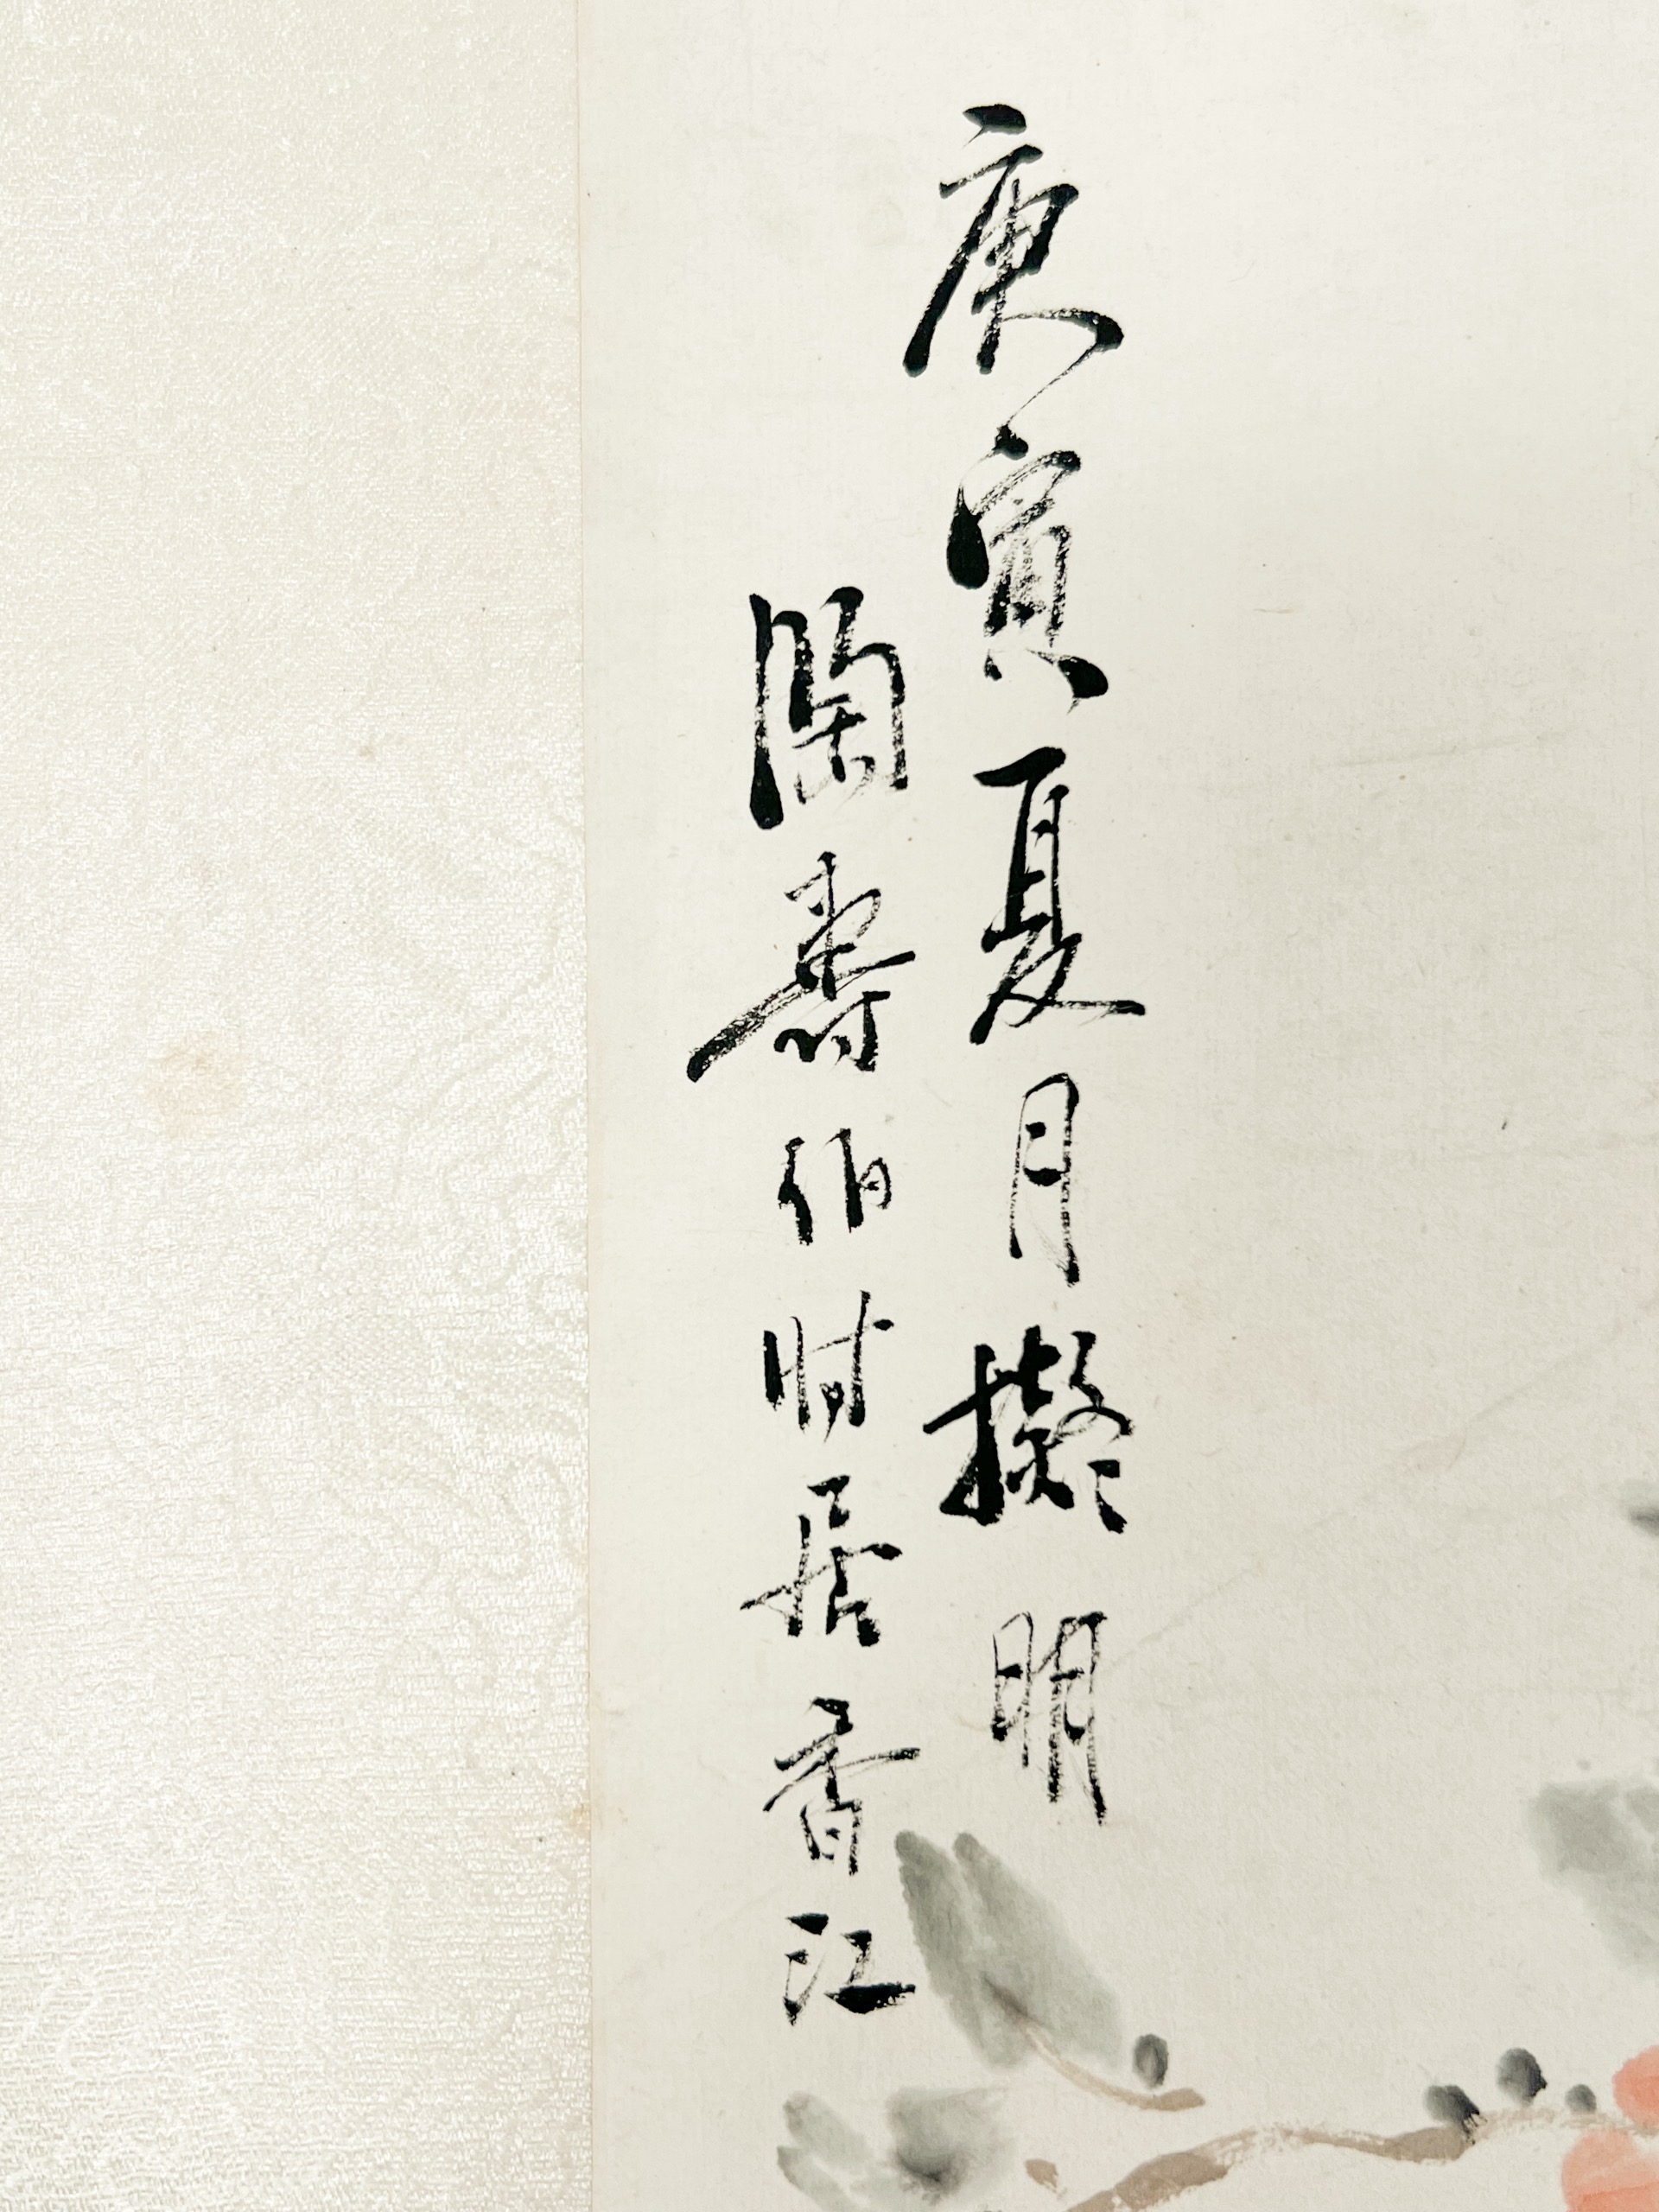 庚寅夏月擬明
閻壽伯時居香江